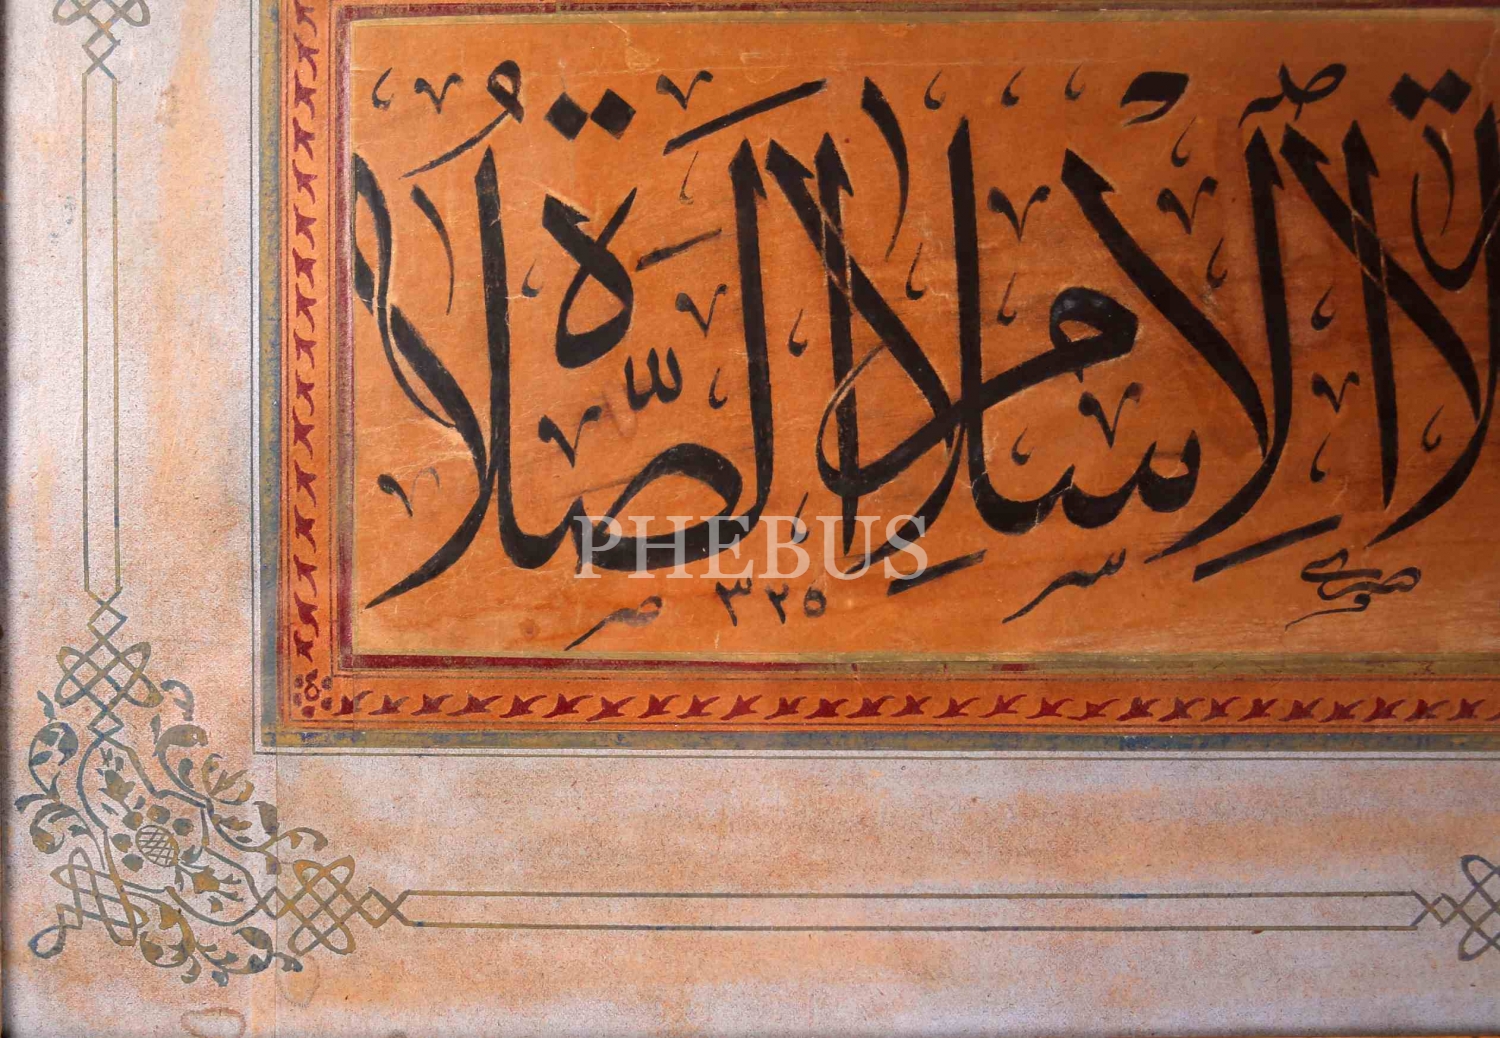 الْإِسْلَامِ الصَّلَاة
٣٢٥
PHEBUS